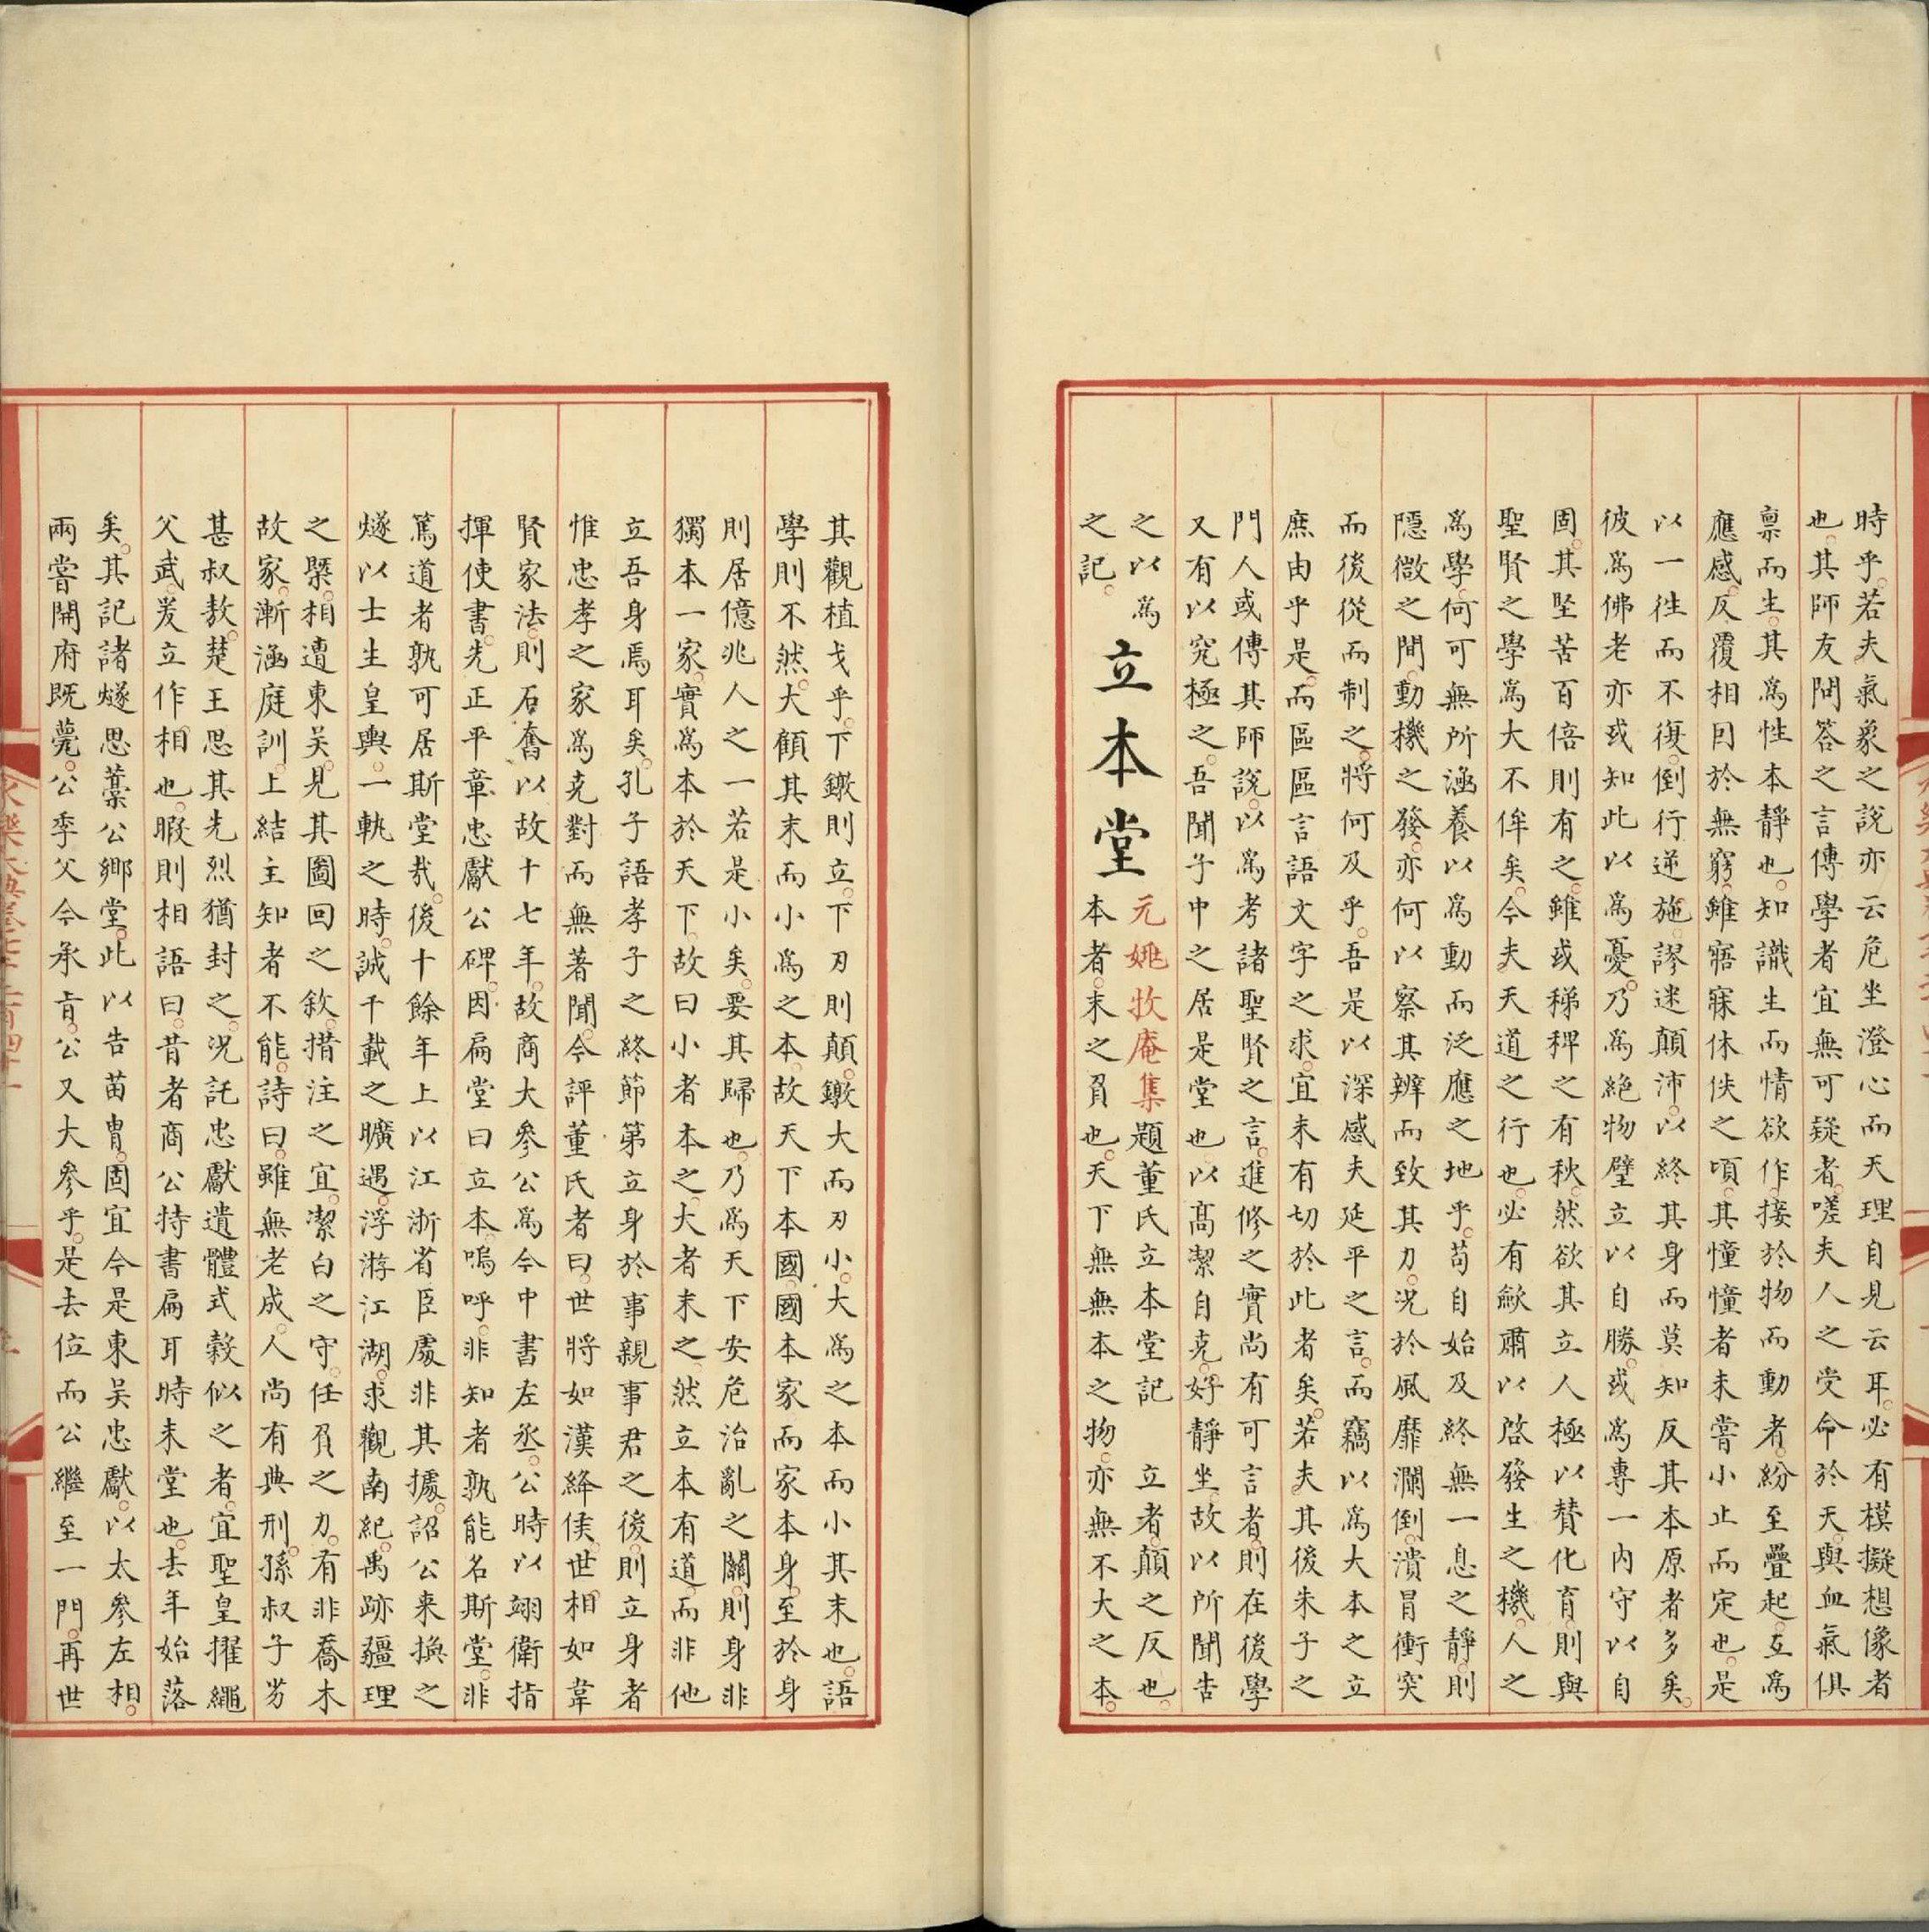 時乎若夫氣象之說亦云危坐澄心而天理自見云耳必有模擬想像者
也其師友問答之言傳學者宜無可疑者嗟夫人之受命於天與血氣俱
稟而生其為性本靜也知識生而情欲作接於物而動者紛至疊起互為
應感反覆相囙於無窮雖寤寐休佚之頃其憧憧者未嘗小止而定也是
以一往而不復倒行逆施謬迷顛沛以終其身而莫知反其本原者多矣
彼為佛老亦或知此以為憂乃為絶物壁立以自勝或為專一內守以自
固其堅苦百倍則有之雖或稊稗之有秋然欲其立人極以賛化育則與
聖賢之學為大不侔矣今夫天道之行也必有歛肅以啓發生之機人之
為學何可無所涵養以為動而泛應之地乎茍自始及終無一息之靜則
隱微之間動機之發亦何以察其辨而致其力況於風靡瀾倒潰冒衝突
而後從而制之將何及乎吾是以深感夫延平之言而竊以為大本之立
庶由乎是而區區言語文字之求宜未有切於此者矣若夫其後朱子之
門人或傳其師說以為考諸聖賢之言進修之實尚有可言者則在後學
又有以究極之吾聞子中之居是堂也以髙潔自克好靜坐故以所聞告
之以為
之記
立本堂
元姚牧庵集題董氏立本堂記 立者顛之反也
本者末之負也天下無無本之物亦無不大之本
其觀植戈乎下鐓則立下刃則顛鐓大而刃小大為之本而小其末也語
學則不然大顧其末而小為之本故天下本國國本家而家本身至於身
則居億兆人之一若是小矣要其歸也乃為天下安危治亂之關則身非
獨本一家實為本於天下故曰小者本之大者末之然立本有道而非他
立吾身焉耳矣孔子語孝子之終節第立身於事親事君之後則立身者
惟忠孝之家為克對而無著聞今評董氏者曰世將如漢絳侯世相如韋
賢家法則石奮以故十七年故商大參公為今中書左丞公時以翊衛指
揮使書先正平章忠獻公碑因扁堂曰立本嗚呼非知者孰能名斯堂非
篤道者孰可居斯堂哉後十餘年上以江浙省臣處非其據詔公來換之
燧以士生皇輿一軌之時誠千載之曠遇浮游江湖求觀南紀禹跡疆理
之槩相遭東吳見其圖回之敘措注之宜潔白之守任負之力有非喬木
故家漸涵庭訓上結主知者不能詩曰雖無老成人尚有典刑孫叔子㞦
甚叔敖楚王思其先烈猶封之況託忠獻遺體式榖似之者宜聖皇擢繩
父武爰立作相也暇則相語曰昔者商公持書扁耳時未堂也去年始落
矣其記諸燧思藁公鄉堂此以告苗胄固宜今是東吳忠獻以太參左相
兩嘗開府既薨公季父今承㫖公又大參乎是去位而公繼至一門再世